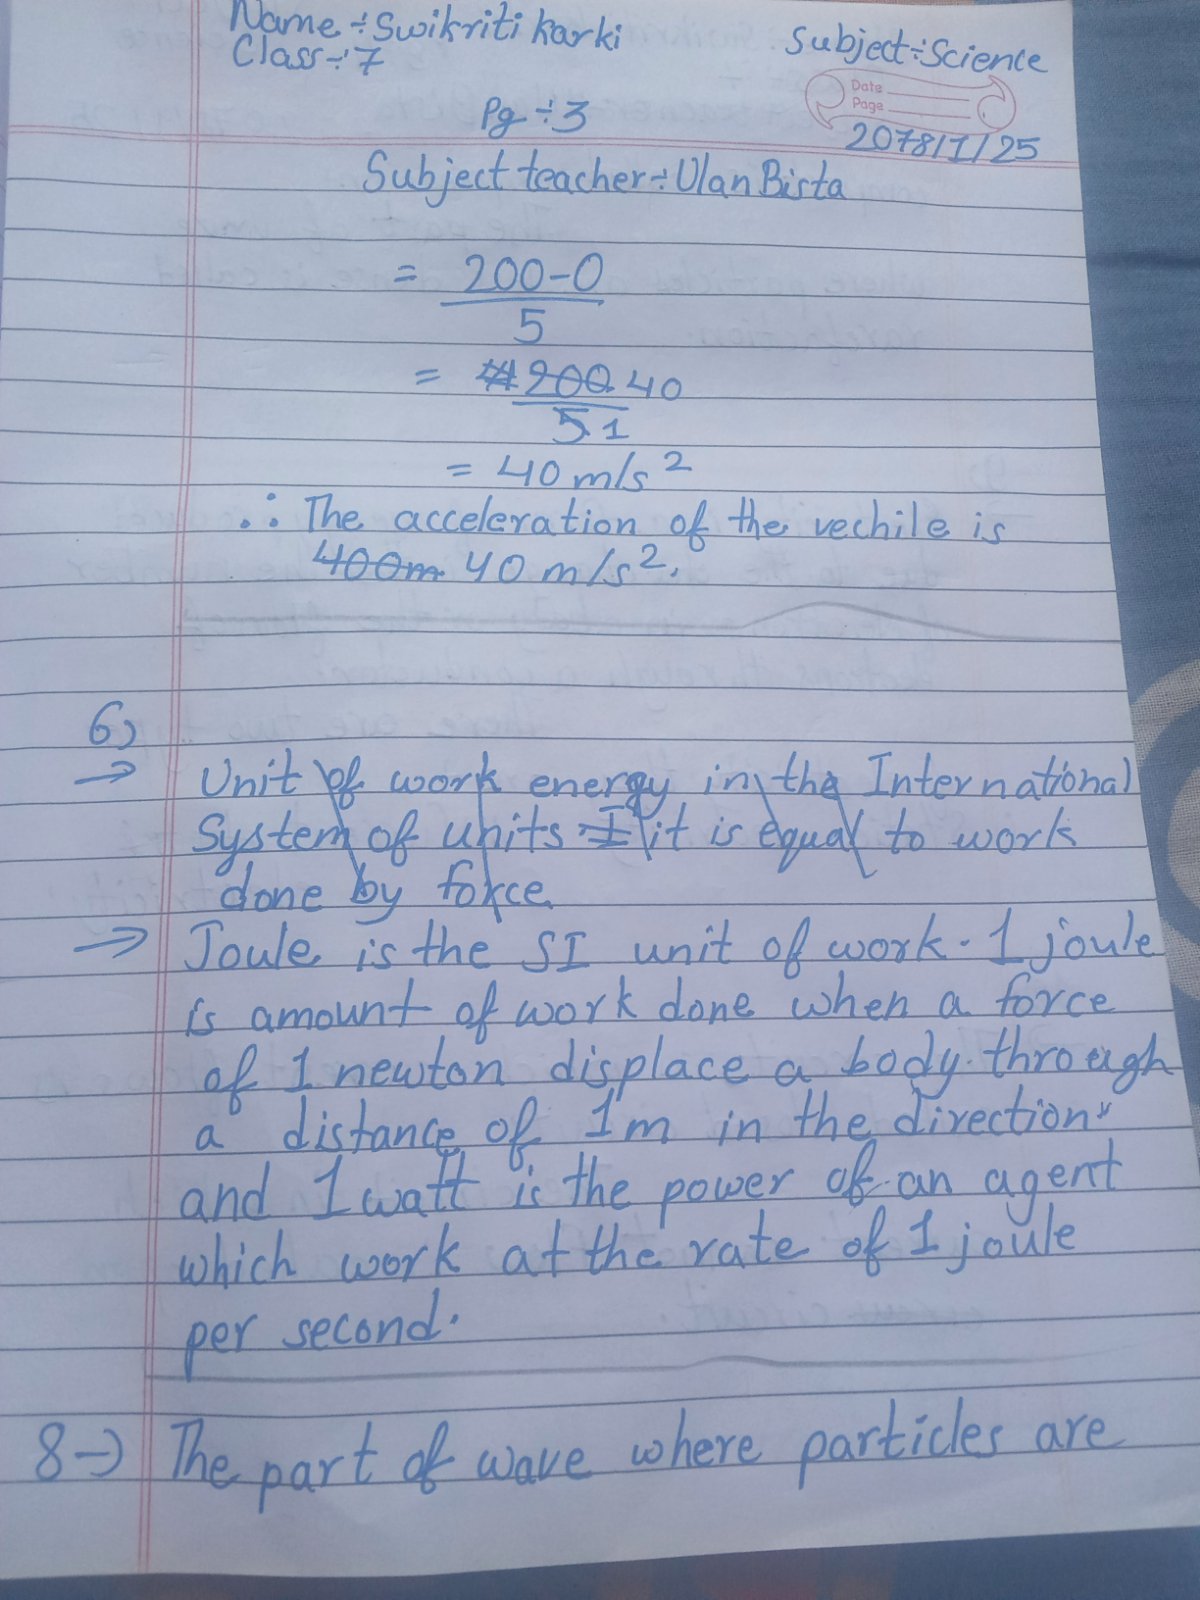 Name÷Swikriti Karki
Subject÷Science
Class÷7
Date
Page
Pg÷3
2078/1/25
Subject teacher÷Ulan Bista
= 200-0
5
= 200 40
5 1
= 40 m/s²
∴ The acceleration of the vechile is
400m 40 m/s².
6)
→ Unit of work energy in the International
System of units I it is equal to work
done by force
→ Joule is the SI unit of work. 1 joule
is amount of work done when a force
of 1 newton displace a body through
a distance of 1m in the direction
and 1 watt is the power of an agent
which work at the rate of 1 joule
per second.
8→ The part of wave where particles are